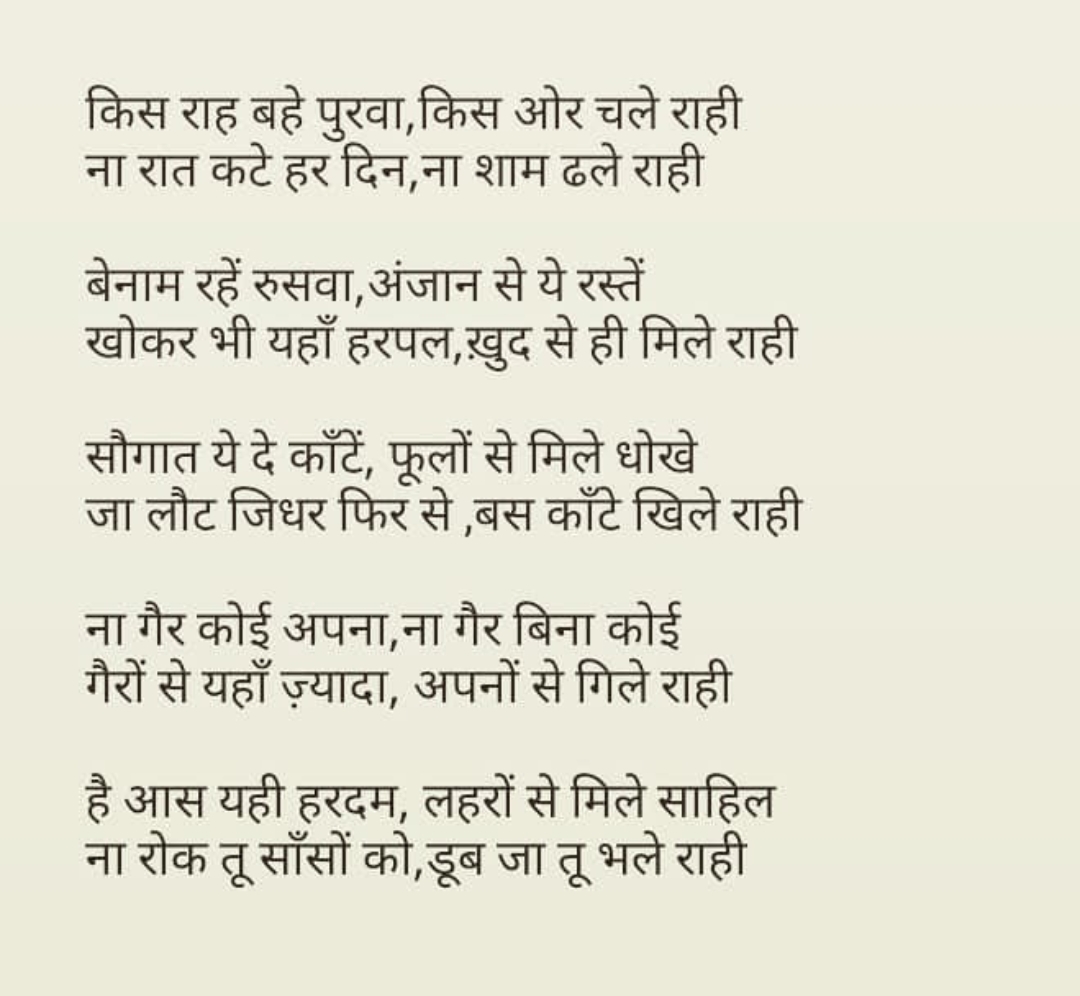 किस राह बहे पुरवा,किस ओर चले राही
ना रात कटे हर दिन,ना शाम ढले राही
बेनाम रहें रुसवा,अंजान से ये रस्तें
खोकर भी यहाँ हरपल,ख़ुद से ही मिले राही
सौगात ये दे काँटें, फूलों से मिले धोखे
जा लौट जिधर फिर से ,बस काँटे खिले राही
ना गैर कोई अपना,ना गैर बिना कोई
गैरों से यहाँ ज़्यादा, अपनों से गिले राही
है आस यही हरदम, लहरों से मिले साहिल
ना रोक तू साँसों को,डूब जा तू भले राही